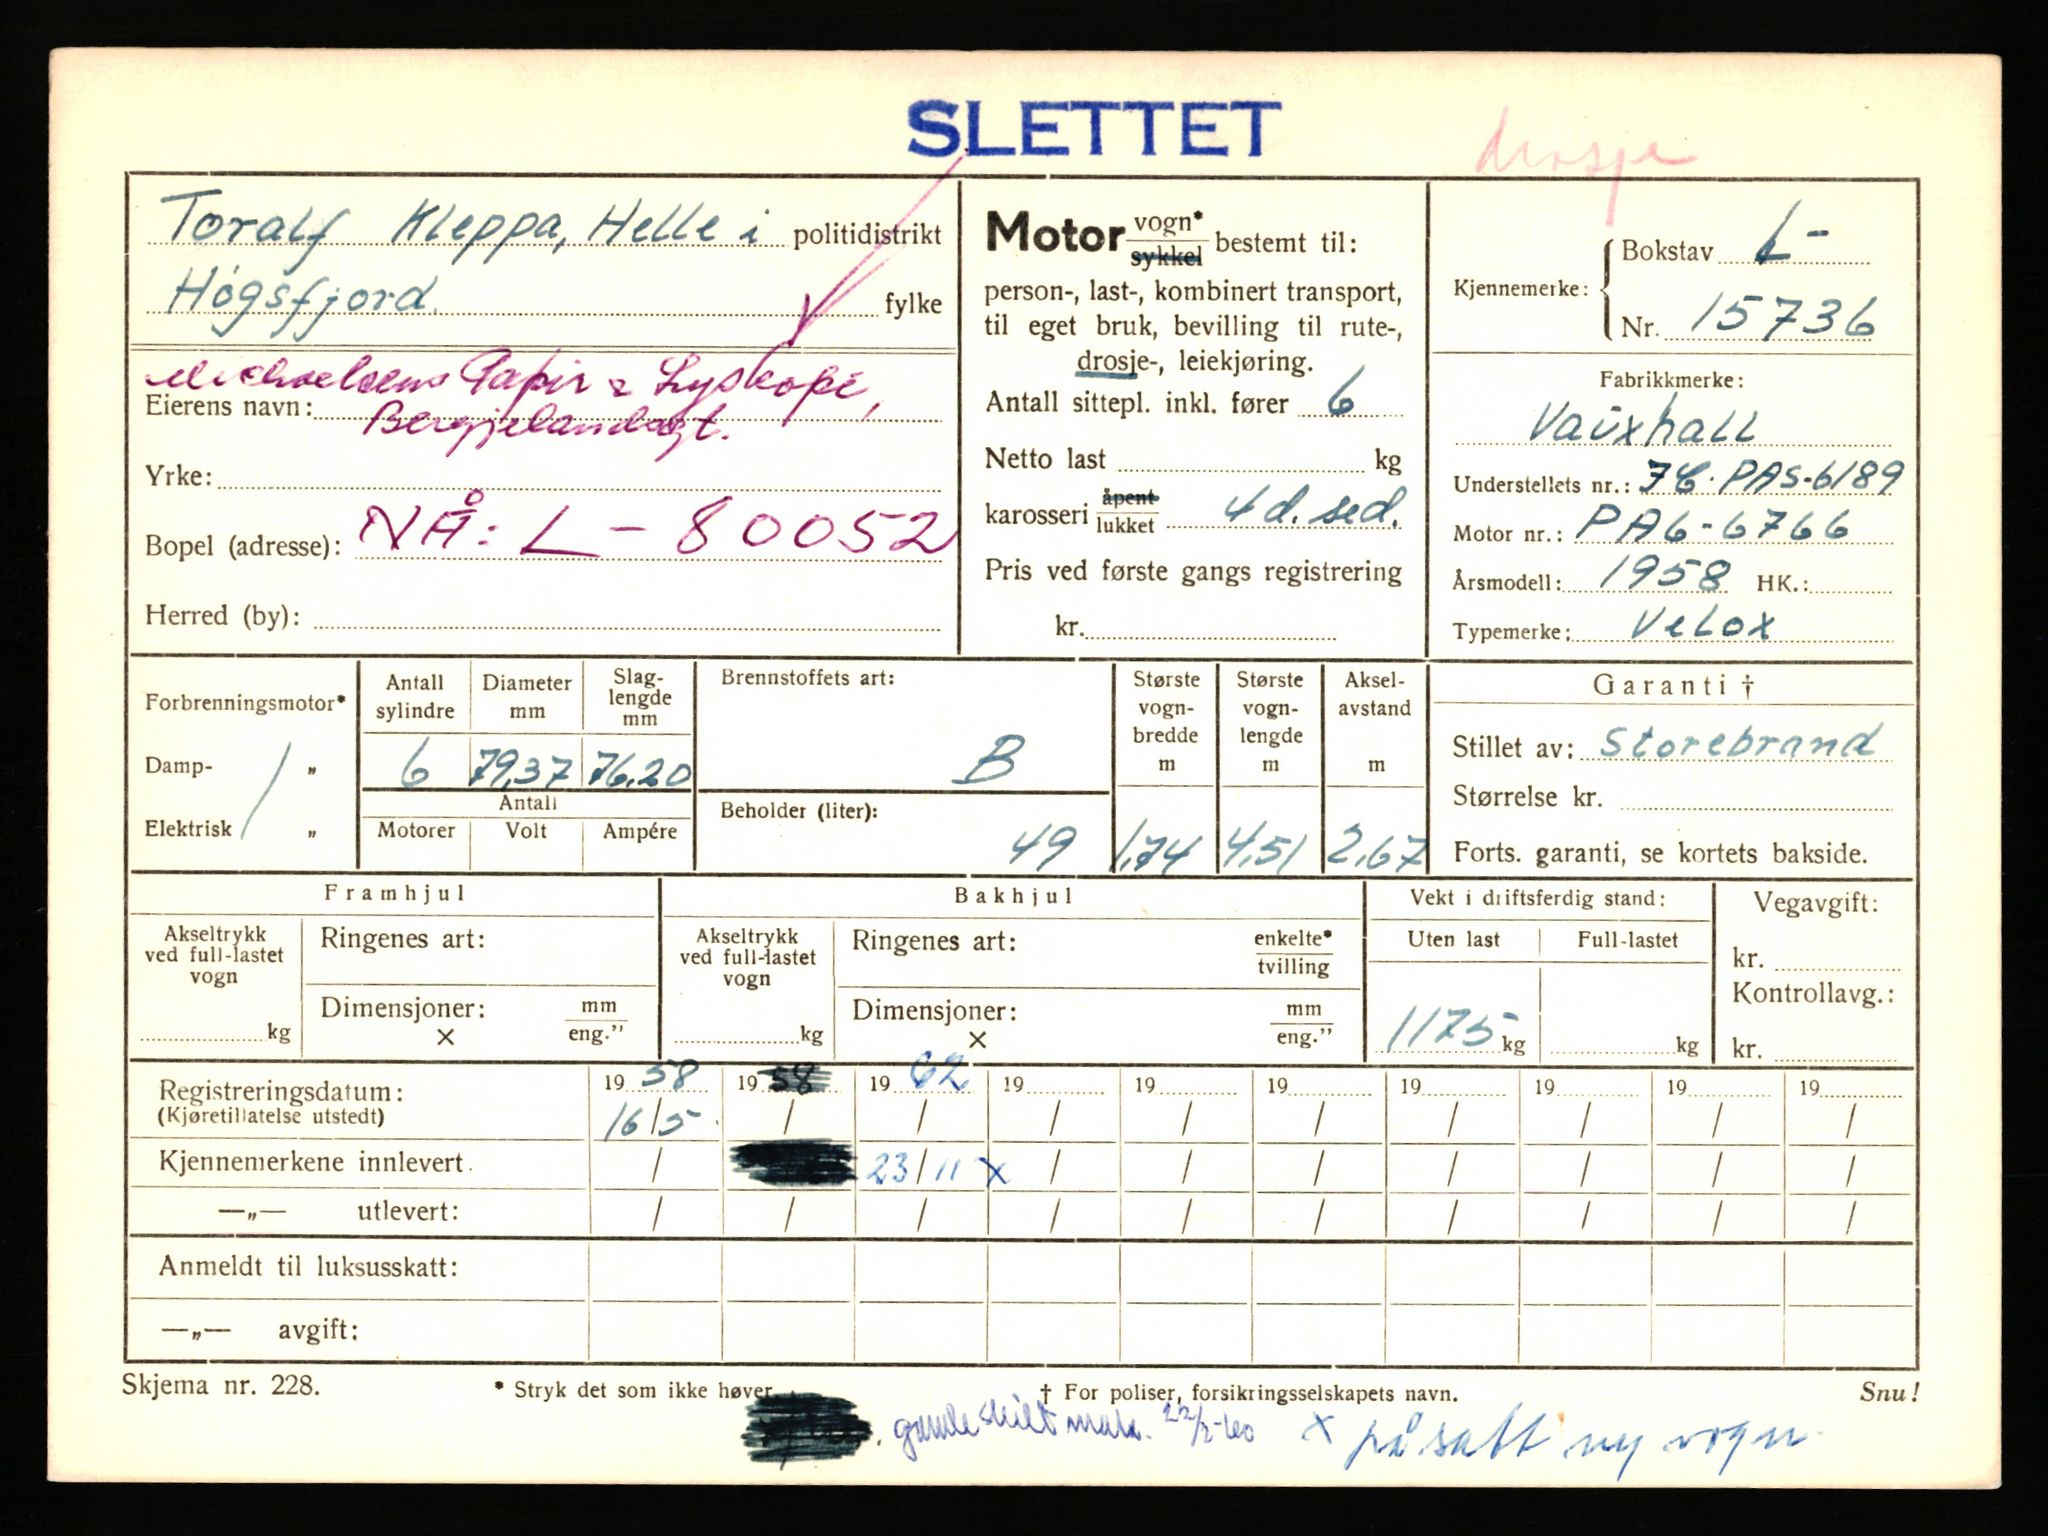 SLETTET
drosje
Toralf Kleppa, Helle i politidistrikt
Høgsfjord. fylke
Michaelsens Papir & Lyskopi,
Eierens navn: Bergjelandsgt.
Yrke:
Bopel (adresse): NÅ: L - 80052
Herred (by):
Motor vogn* / sykkel bestemt til:
person-, last-, kombinert transport,
til eget bruk, bevilling til rute-,
drosje-, leiekjøring.
Antall sittepl. inkl. fører 6
Netto last kg
karosseri åpent / lukket 4 d. sed.
Pris ved første gangs registrering
kr.
Kjennemerke: { Bokstav L-
Nr. 15736
Fabrikkmerke:
Vauxhall
Understellets nr.: PAS-6189
Motor nr.: PA6-6766
Årsmodell: 1958 HK.:
Typemerke: Velox
Forbrenningsmotor*
Damp- „
Elektrisk „
Antall sylindre Diameter mm Slag-lengde mm
6 79,37 76,20
Antall
Motorer Volt Ampére
Brennstoffets art:
B
Beholder (liter):
49
Største vogn-bredde m Største vogn-lengde m Aksel-avstand m
1,74 4,51 2,67
Garanti †
Stillet av: Storebrand
Størrelse kr.
Forts. garanti, se kortets bakside.
Framhjul
Akseltrykk ved full-lastet vogn
kg
Ringenes art:
Dimensjoner: mm / eng.”
×
Bakhjul
Akseltrykk ved full-lastet vogn
kg
Ringenes art: enkelte* / tvilling
Dimensjoner: mm / eng.”
×
Vekt i driftsferdig stand:
Uten last Full-lastet
1175 kg kg
Vegavgift:
kr.
Kontrollavg.:
kr.
Registreringsdatum: 19 58 19 58 19 62 19 19 19 19 19 19 19
(Kjøretillatelse utstedt) 16/5 / / / / / / / / /
Kjennemerkene innlevert. / 23/11 x / / / / / / /
—„— utlevert: / / / / / / / / / /
Anmeldt til luksusskatt:
—„— avgift:
Skjema nr. 228. * Stryk det som ikke høver † For poliser, forsikringsselskapets navn. Snu!
gamle skilt mak. 22/2-60 x påsatt ny vogn.